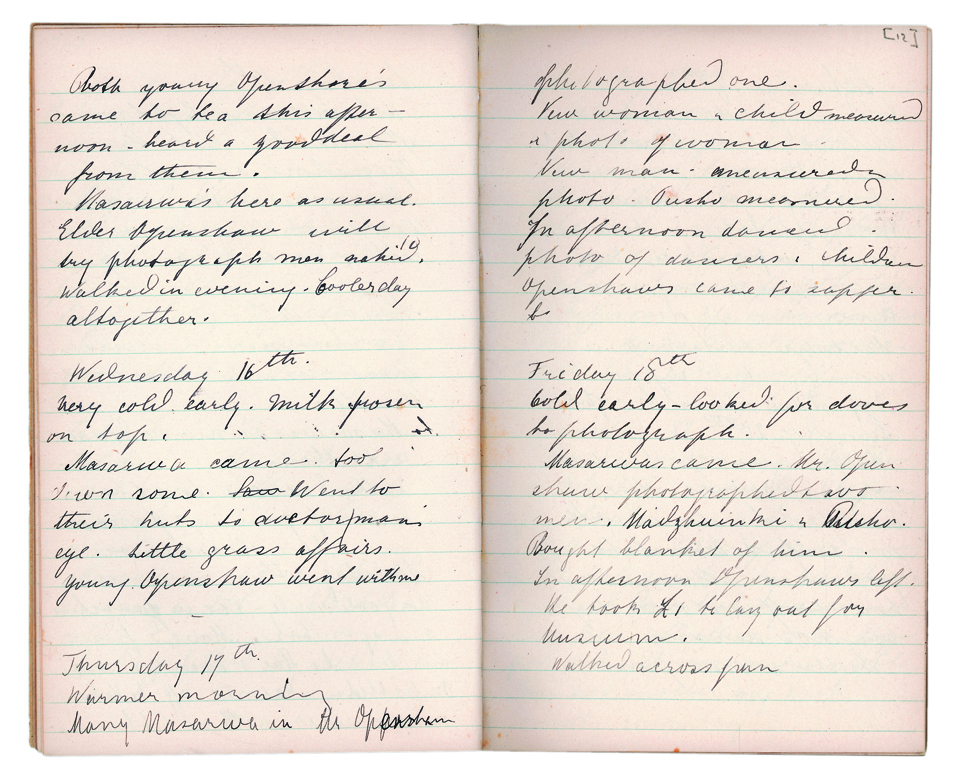 Both young Openshore's
came to tea this after-
noon - heard a good deal
from them.
Masarwa's here as usual.
Elder Openshaw will
try photograph men naked.
Walked in evening. Cooler day
altogether.
Wednesday 16th.
Very cold early. Milk frozen
on top.
Masarwa came. too
some. Saw Went to
their huts to doctor man's
eye. Little grass affairs.
Young Openshaw went with me
Thursday 17th.
Warmer morning
Many Masarwa in Mr Openshaw
[12]
photographed one.
New woman & child measured
& photo of woman.
New man. measured &
photo. Pusho measured.
In afternoon danced.
photo of dancers & children
Openshaws came to supper.
to
Friday 18th
Cold early - looked for doves
to photograph.
Masarwas came. Mr. Open
shaw photographed two
men. Madzhuinki & Pusho.
Bought blanket of him.
In afternoon Openshaws left.
He took £1 to lay out for
Museum.
Walked across